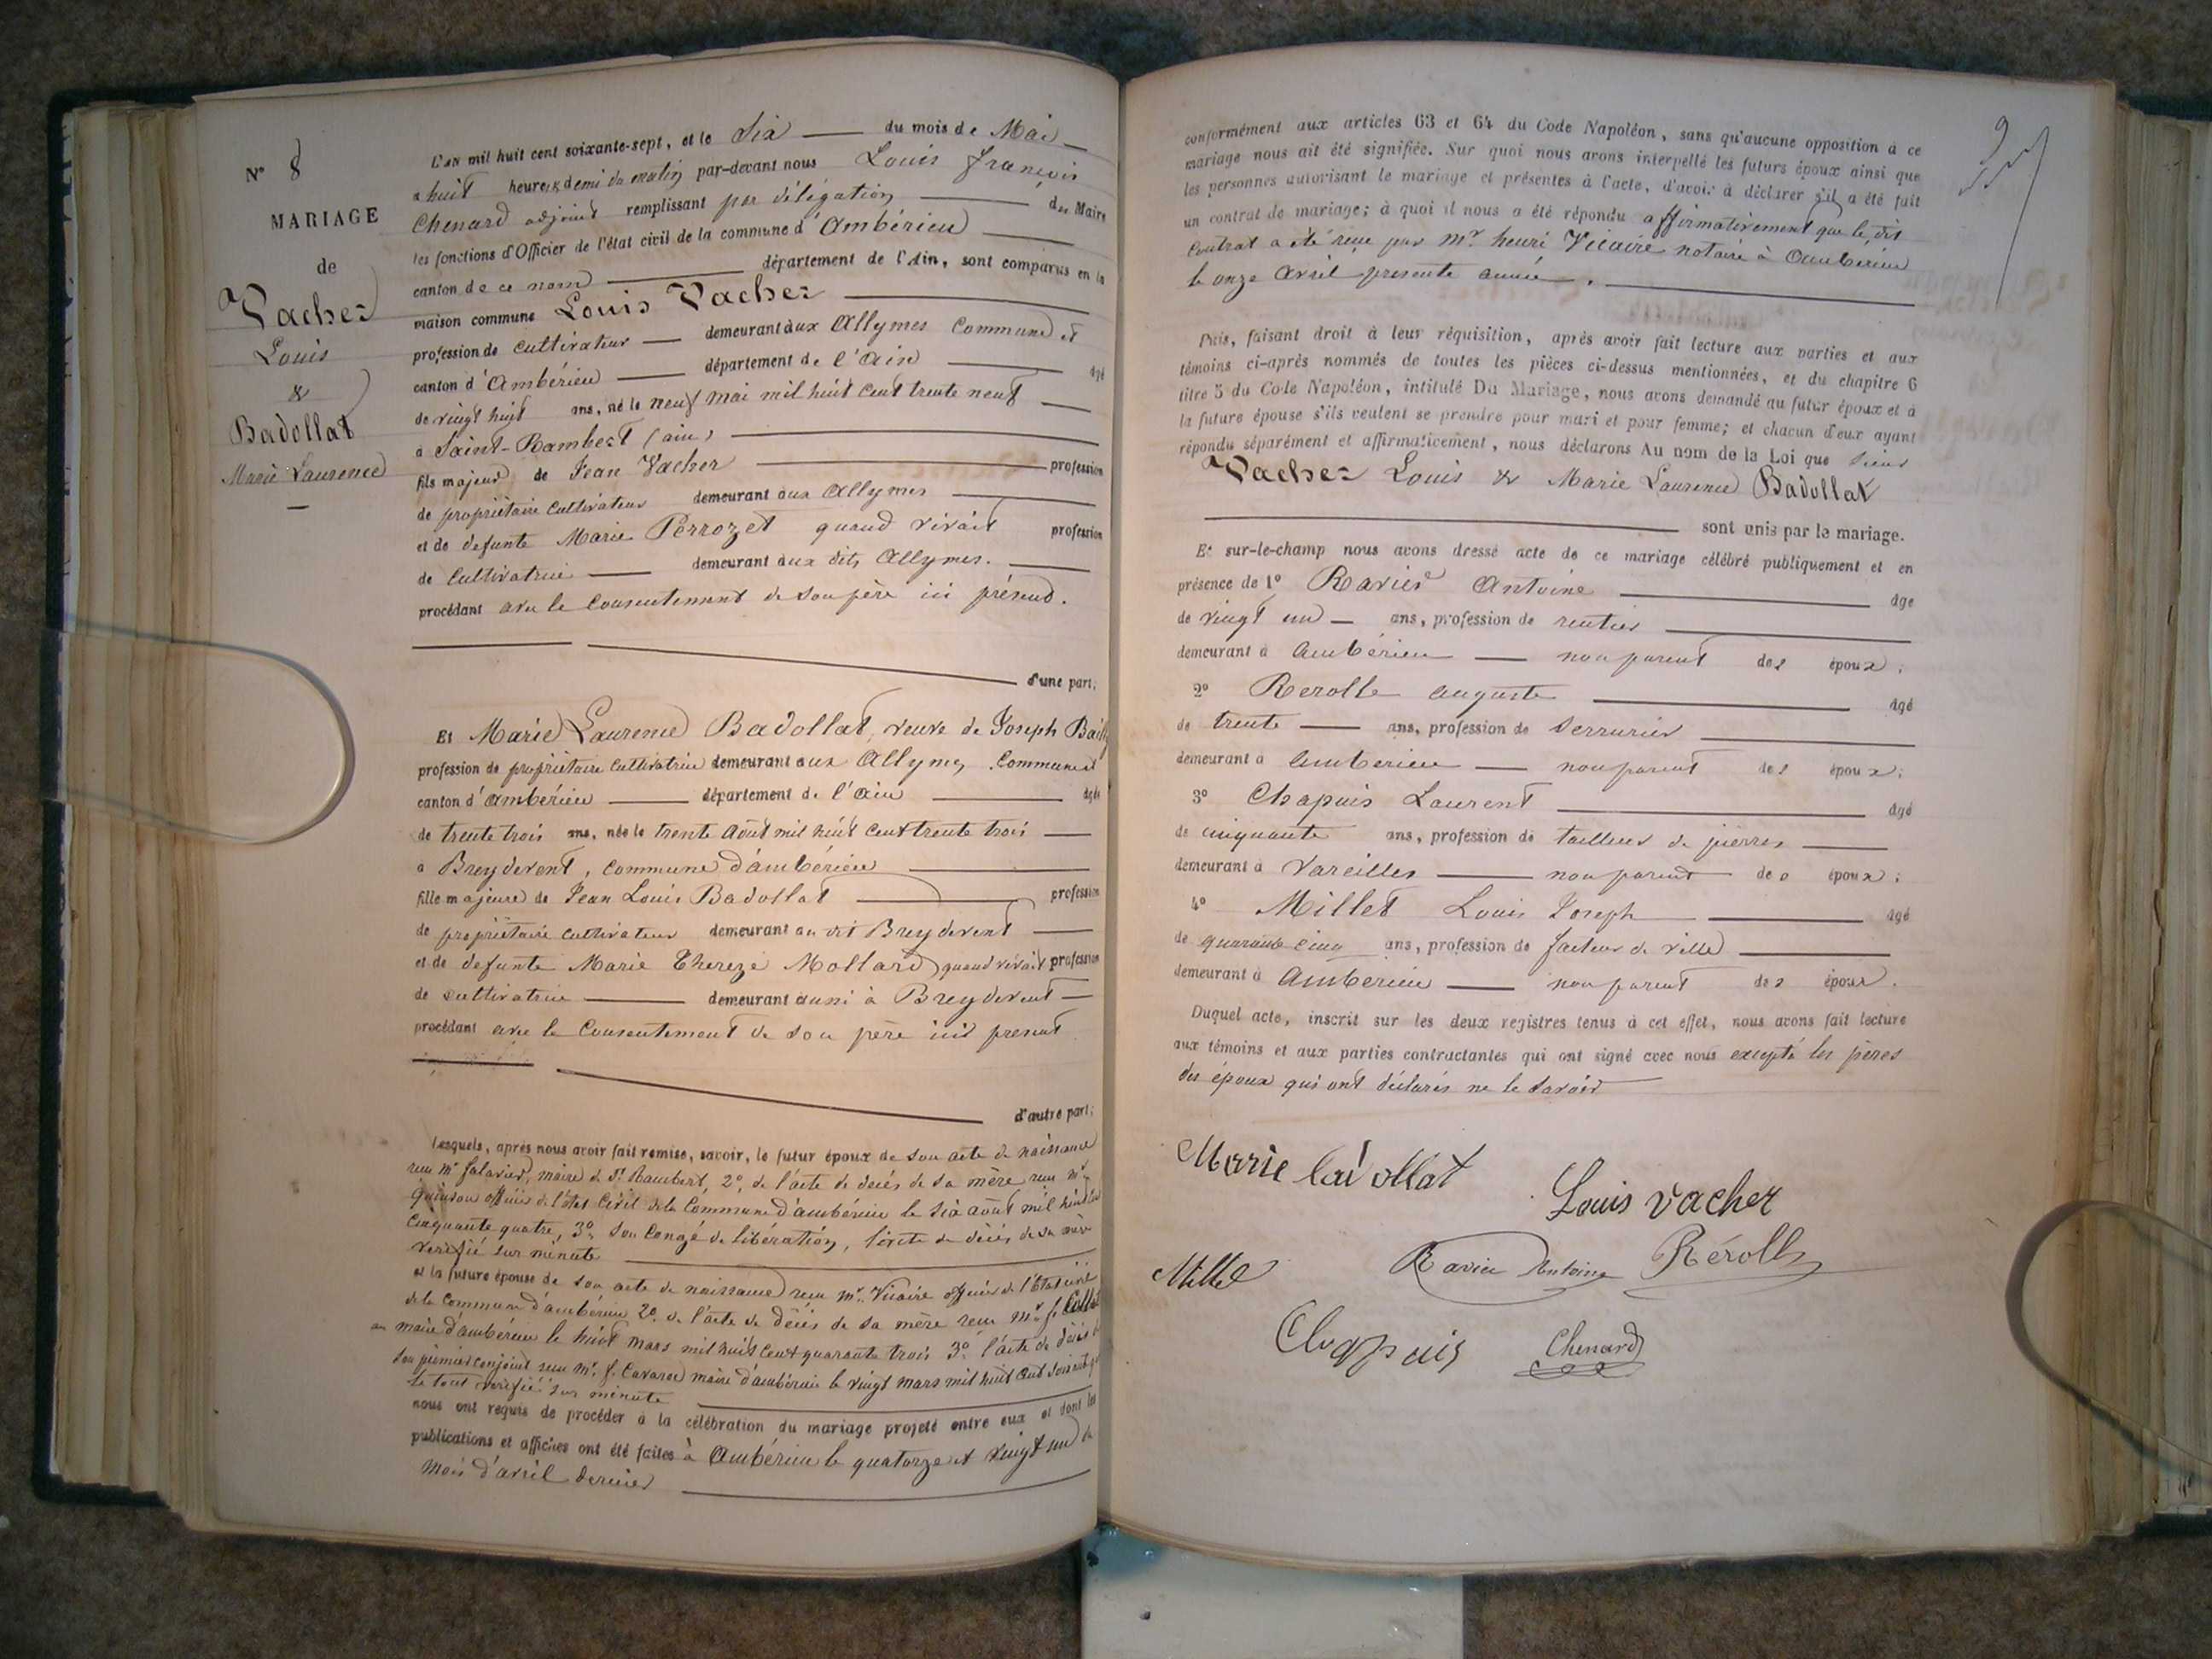 N° 8
MARIAGE
de
Vacher
Louis
&
Badollat
Marie Laurence
L'an mil huit cent soixante-sept, et le six du mois de Mai
a huit heures & demi du matin par-devant nous Louis François
Chenard adjoint remplissant par délégation du Maire
les fonctions d'Officier de l'état civil de la commune d'Ambérieu
canton de ce nom département de l'Ain, sont comparus en la
maison commune Louis Vacher
profession de cultivateur demeurant aux Allymes Commune et
canton d'Ambérieu département de l'Ain âgé
de vingt huit ans, né le neuf mai mil huit cent trente neuf
à Saint-Rambert (ain)
fils majeur de Jean Vacher profession
de propriétaire cultivateur demeurant aux Allymes
et de defunte Marie Perrozet quand vivait profession
de cultivatrice demeurant aux dits Allymes.
procédant avec le consentement de son père ici présent.
d'une part;
Et Marie Laurence Badollat, veuve de Joseph Bailly
profession de propriétaire cultivatrice demeurant aux Allymes, Commune et
canton d'ambérieu département de l'ain âgée
de trente trois ans, née le trente août mil huit cent trente trois
à Breydevent, commune d'ambérieu
fille majeure de Jean Louis Badollat profession
de propriétaire cultivateur demeurant au dit Breydevent
et de defunte Marie Thereze Mollard quand vivait profession
de cultivatrice demeurant aussi à Breydevent
procédant avec le consentement de son père ici présent
d'autre part;
Lesquels, après nous avoir fait remise, savoir, le futur époux de son acte de naissance
reçu mr maire de St Rambert, 2°, de l'acte de décès de sa mère reçu mr
officier de l'état civil de la Commune d'ambérieu le six août mil huit cent
cinquante quatre, 3° son congé de libération, l'acte de décès de sa mère
verifié sur minute
et la future épouse de son acte de naissance reçu mr. Vicaire officier de l'Etat civil
de la Commune d'ambérieu 2° de l'acte de décès de sa mère reçu mr f.
maire d'ambérieu le huit mars mil huit cent quarante trois 3° l'acte de décès de
son premier conjoint reçu mr. f. maire d'ambérieu le vingt mars mil huit cent
le tout verifié sur minute
nous ont requis de procéder à la célébration du mariage projeté entre eux et dont les
publications et affiches ont été faites à Ambérieu le quatorze et vingt un du
mois d'avril dernier
conformément aux articles 63 et 64 du Code Napoléon, sans qu'aucune opposition a ce
mariage nous ait été signifiée. Sur quoi nous avons interpellé les futurs époux ainsi que
les personnes autorisant le mariage et présentes à l'acte, d'avoir à déclarer s'il a été fait
un contrat de mariage; à quoi il nous a été répondu affirmativement que le dit
Contrat a été reçu par Mr. henri Vicaire notaire à Ambérieu
le onze Avril presente année.
Puis, faisant droit à leur réquisition, après avoir fait lecture aux parties et aux
témoins ci-après nommés de toutes les pièces ci-dessus mentionnées, et du chapitre 6
titre 5 du Code Napoléon, intitulé Du Mariage, nous avons demandé au futur époux et à
la future épouse s'ils veulent se prendre pour mari et pour femme; et chacun d'eux ayant
répondu séparément et affirmativement, nous déclarons Au nom de la Loi que sieur
Vacher Louis & Marie Laurence Badollat
sont unis par le mariage.
Et sur-le-champ nous avons dressé acte de ce mariage célébré publiquement et en
présence de 1° Ravier Antoine âgé
de vingt un ans, profession de rentier
demeurant à Ambérieu non parent des époux;
2° Rerolle auguste âgé
de trente ans, profession de Serrurier
demeurant à Ambérieu non parent des époux;
3° Chapuis Laurent âgé
de cinquante ans, profession de tailleur de pierres
demeurant à Vareilles non parent des époux;
4° Millet Louis Joseph âgé
de quarante cinq ans, profession de facteur de ville
demeurant à Ambérieu non parent des époux.
Duquel acte, inscrit sur les deux registres tenus à cet effet, nous avons fait lecture
aux témoins et aux parties contractantes qui ont signé avec nous excepté les pères
des époux qui ont déclarés ne le savoir
Louis Vacher
Millet
Ravier Antoine Réroll
Chapuis Chenard